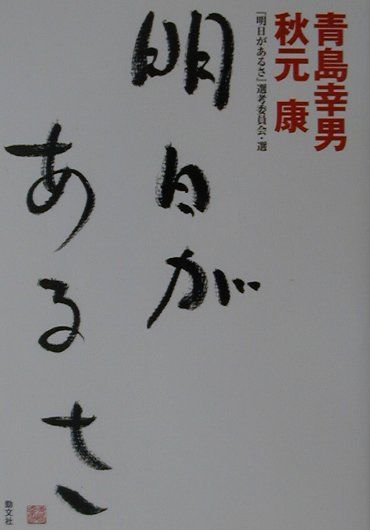 青島幸男
秋元 康
『明日があるさ』選考委員会・選
明日が
あるさ
勁文社